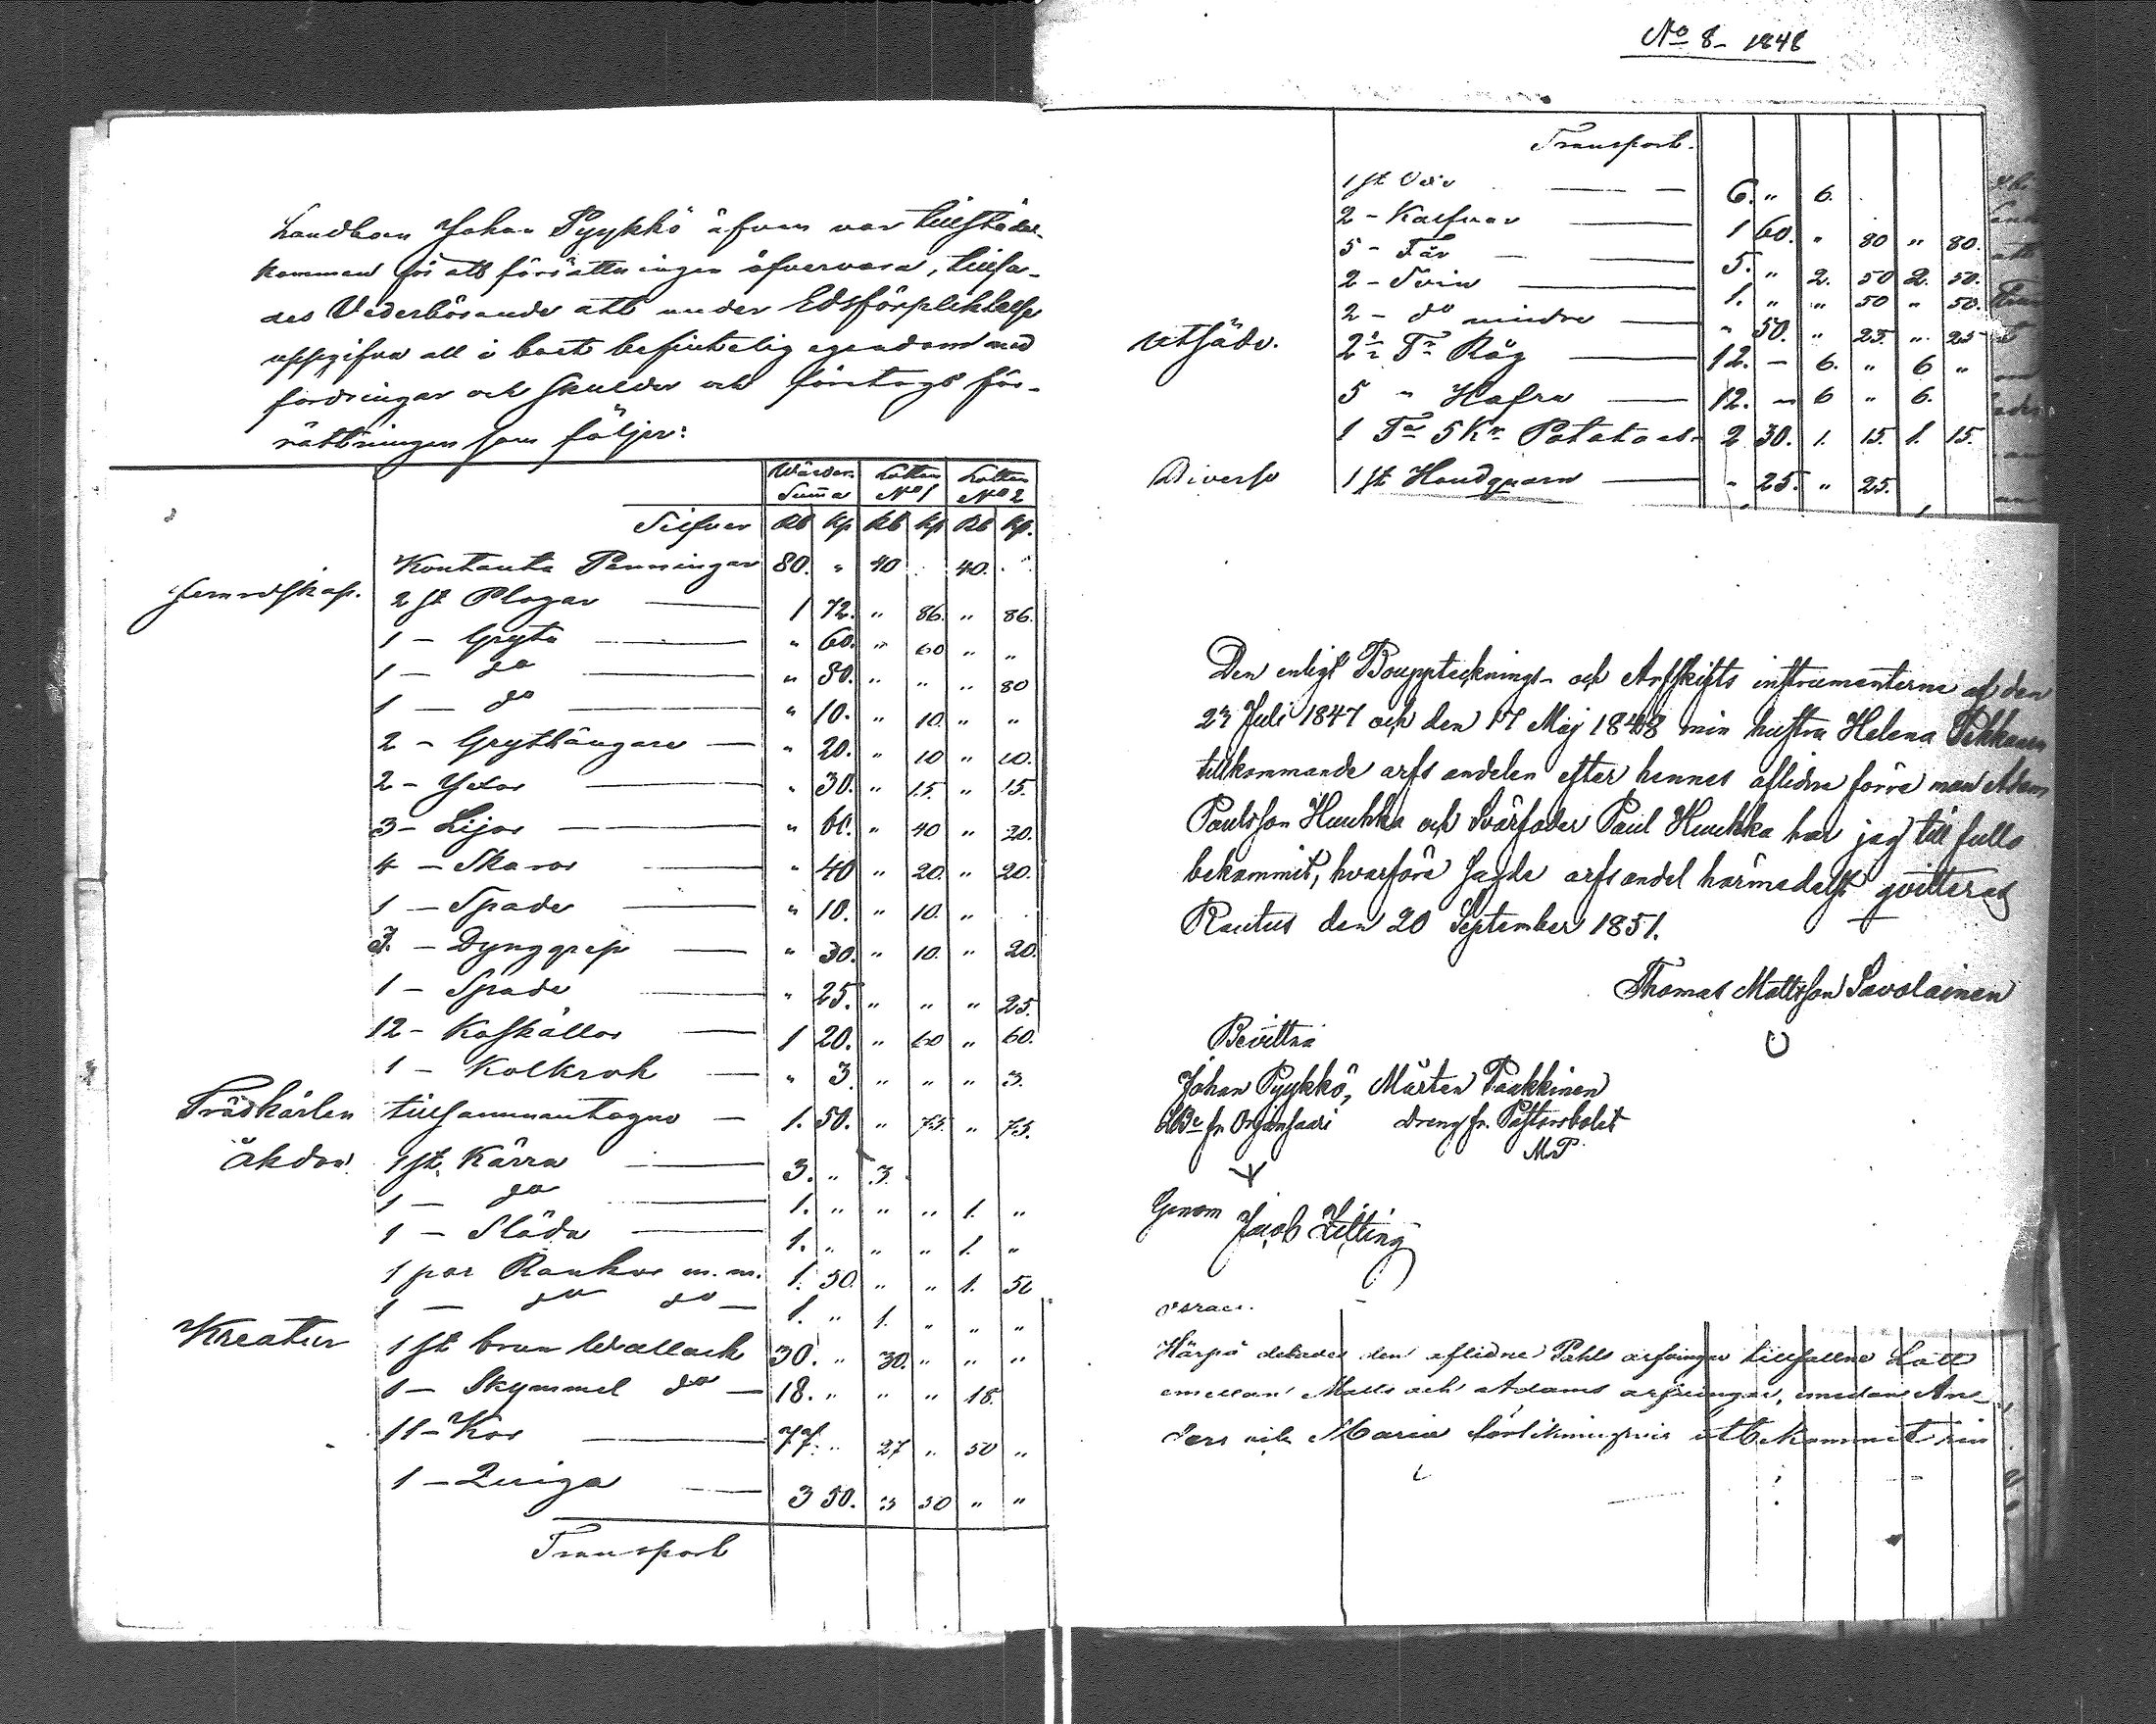 Landboen Johan Pyykkö äfven var tillstädes
kommen för att förrättningen öfvervara, tillsa-
des Vederbörande att under Edsförpliktelse
uppgifva all i boet befintelig egendom med
fordringar och skulder och företogs för-
rättningen som följer:
Wärder. Lotten Lotten
Summa No 1 No 2
Silfver Rb kp Rb kp Rb kp.
Kontanta Penningar 80. " 40 . 40. "
Jernredskap. 2 st Plogar — 1 72. " 86. " 86.
1 — Gryta — " 60. " 60 " "
1 — do — " 80. " " " 80
1 — do — " 10. " 10. " "
2 - Grythängare — " 20. " 10 " 10.
2 - Yxor — " 30. " 15. " 15.
3 - Lijor — " 60. " 40 " 20.
4 — Skaror — " 40 " 20. " 20.
1 — Spade — " 10. " 10. "
3. — Dynggrep — " 30. " 10. " 20.
1 — Spade — " 25. " " " 25.
12 - Koskällor — 1 20. " 60 " 60.
1 — Kolkrok — " 3. " " " 3.
Trädkärlen tillsammantagne — 1. 50. " 75. " 75.
åkdon 1 st. Kärra — 3. " 3.
1 — do — 1. " " " 1. "
1 — Släda — 1. " " " 1. "
1 par Rankor m.m. 1. 50. " " 1. 50
1 — do do — 1. " 1. " " "
Kreatur 1 st brun Wallack 30. " 30. " " "
1 — Skymmel do — 18. " " " 18.
11 — Kor — 77. " 27 " 50 "
1 — Quiga — 3 50. 3 50 " "
Transport
No 8 - 1848
Transport.
1 st — 6. " 6.
2 - Kalfvar — 1 60. " 80 " 80.
5 - Får — 5. " 2. 50 2. 50.
2 - Svin — 1. " " 50 " 50.
2 - do mindre — " 50. " 25. " 25
Utsäde. 2 1/2 Tr Råg — 12. — 6. " 6 "
5 " Hafra — 12. — 6 " 6.
1 Ta 5 Kr Potatoes - 2 30. 1. 15. 1. 15.
Diverse 1 st Handquarn — " 25. " 25.
Den enligt Bouppteknings- och Arfskifts instrumenterne af den
23 Juli 1847 och den 17 Maj 1848 min hustru Helena Pekkanen
tillkommande arfs andelen efter hennes aflidne förre man Adam
Paulsson Huuhka och Svärfader Paul Huuhka har jag till fullo
bekommit, hvarföre sagde arfs andel härmedelst qvitteras
Rautus den 20 September 1851.
Thomas Mattsson Savolainen
Bevittna
Johan Pyykkö, Mårten Paakkinen
LBe fr. Orjansaari dreng fr. Pastorsbolet
MP
Genom Jacob Zitting
Härpå delades den aflidne Påhls arfvingar tillfallne Lott
emellan Matts och Adams arfvingar, emedan An-
ders och Maria förlikningsvis utbekommit sin